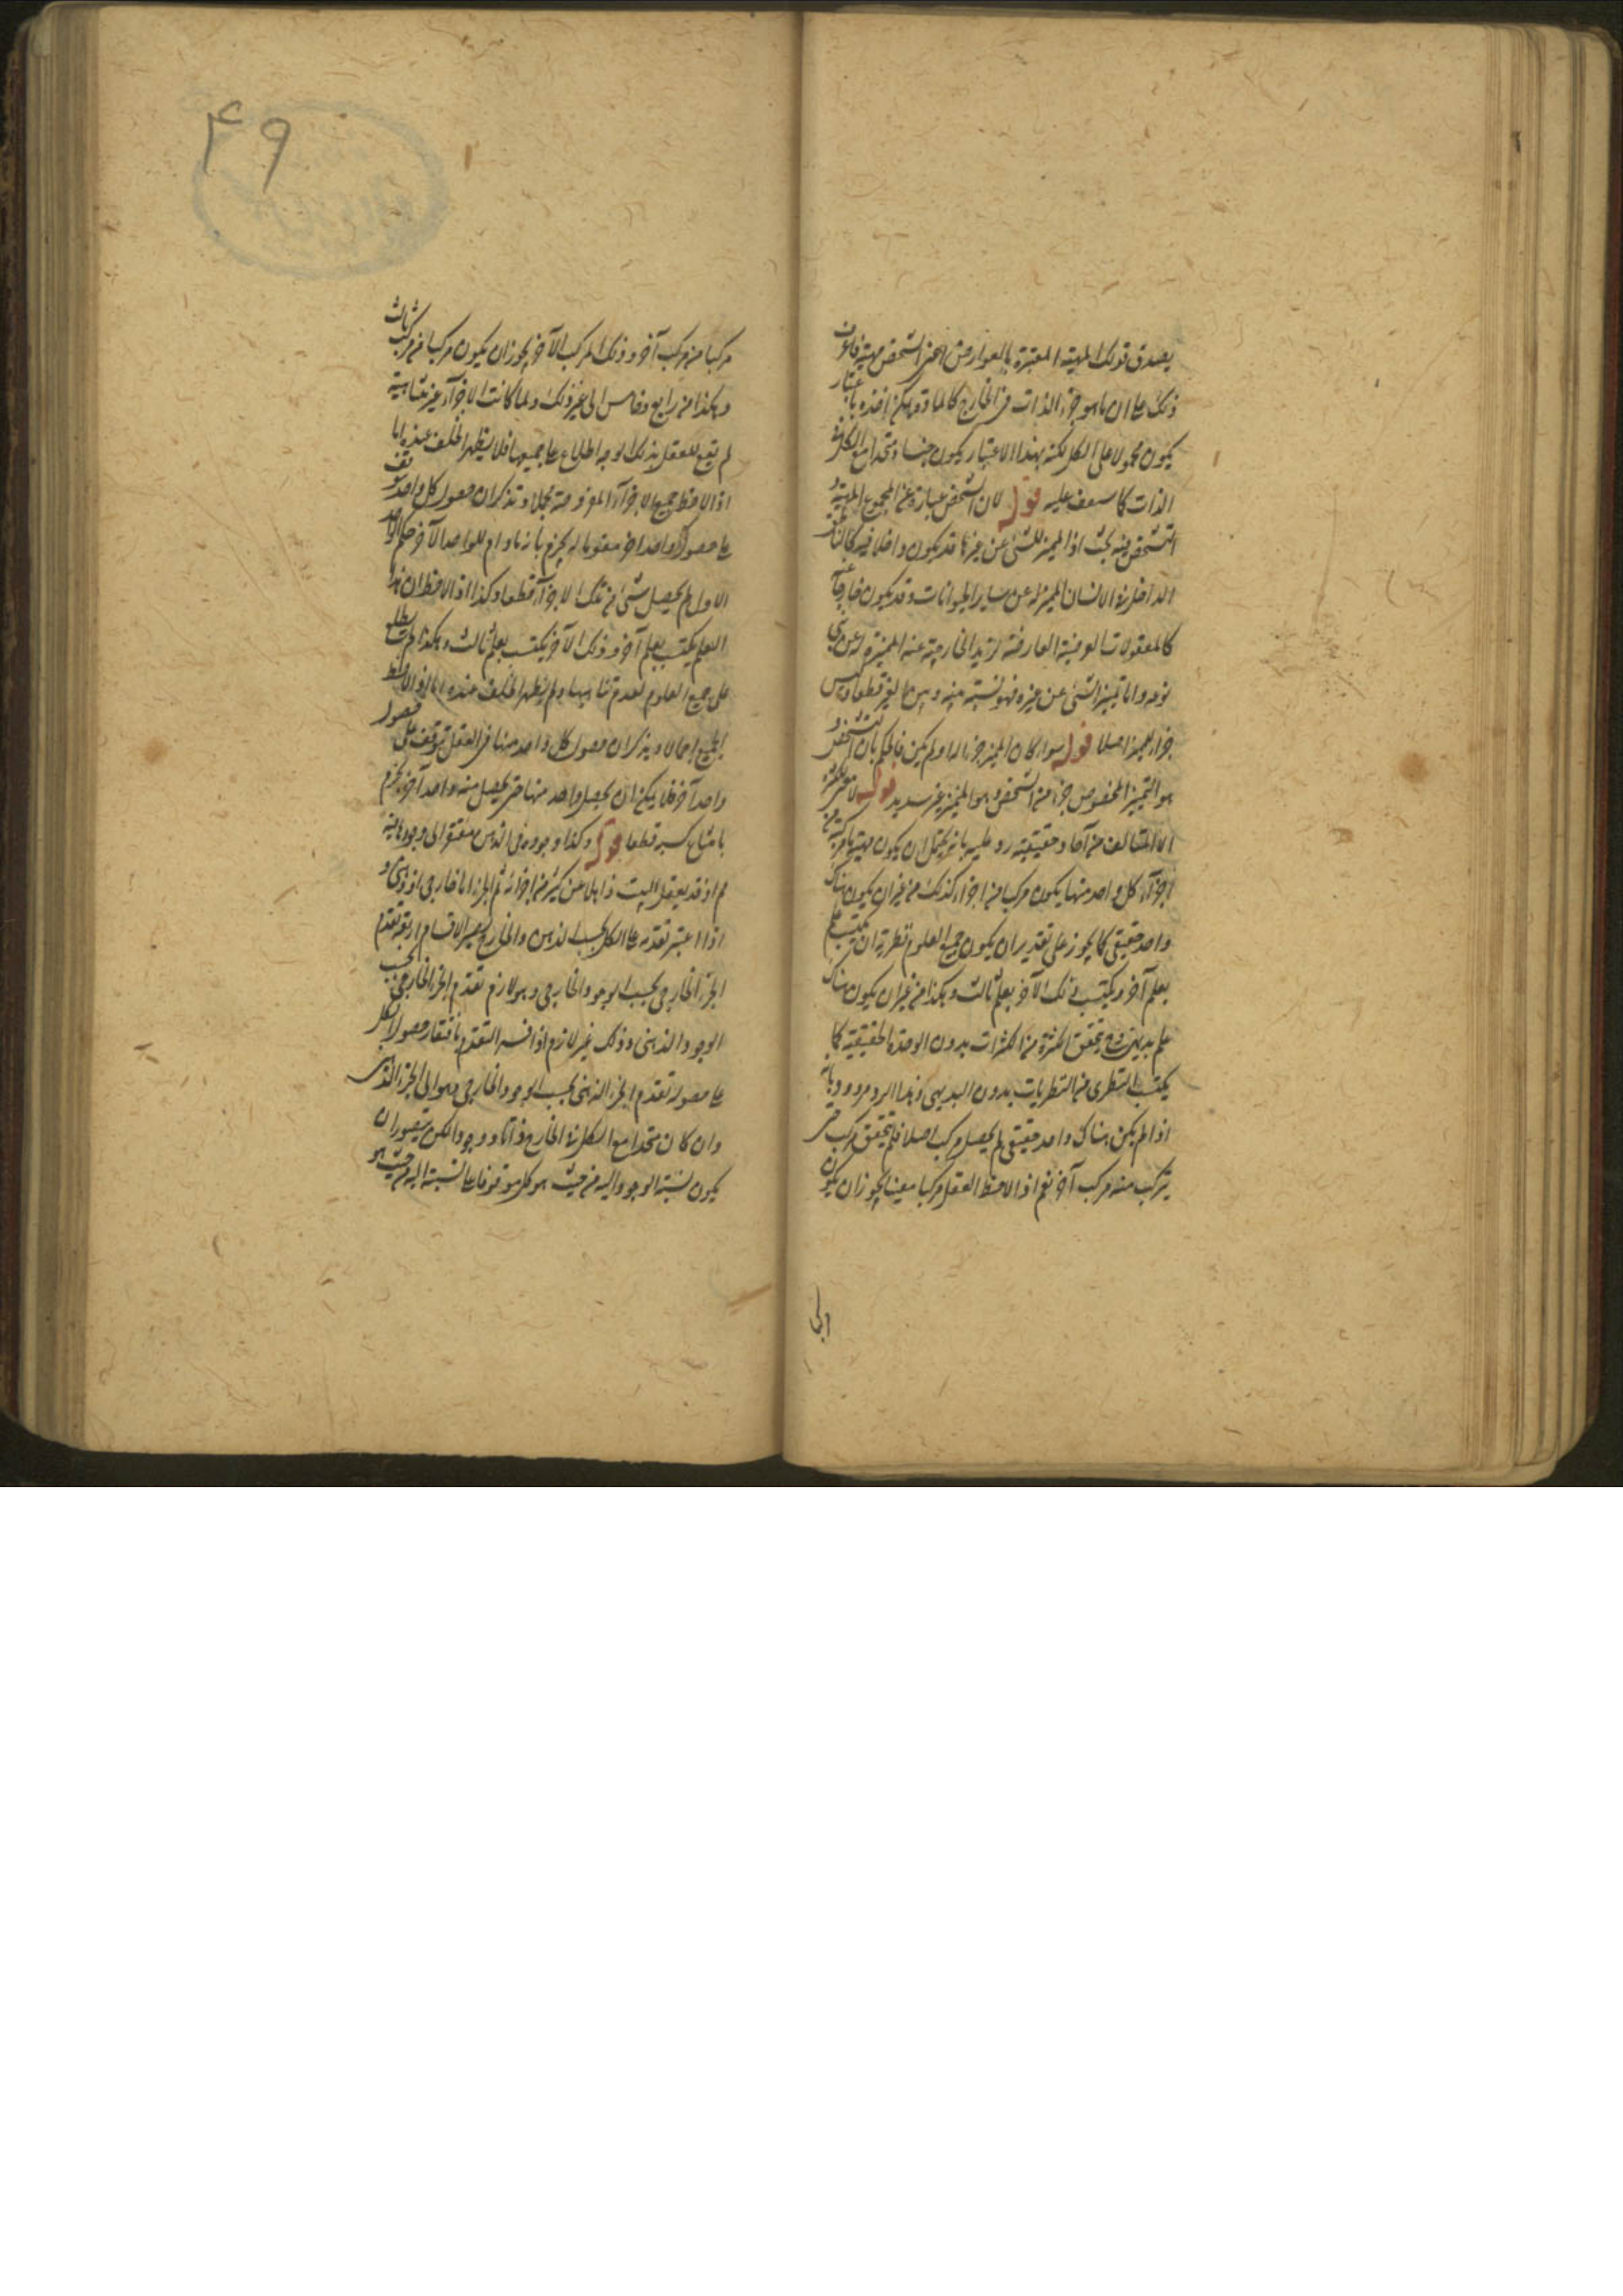 يصدق قولك المهية المعتبرة بالعوارض اعنى الشخص مهية فانه
ذلك على ان ما هو جزء الذات فى الخارج كالمادة يمكن اخذه باعتبار
يكون محمولا على الكل لكنه بهذا الاعتبار يكون جنسا متحدا مع الكل
الذات كما ستعف عليه قوله لان الشخص عبارة عن المجموع المهية و
التشخص فيه بحث اذ المميز للشئ عن غيره قد يكون داخلا فيه كالناطق
الداخل فى الانسان المميز له عن ساير الحيوانات وقد يكون خارجا عنه
كالمعقولات العرضية العارضة لزيد الخارجة عنه المميزة له عن بنى
نوعه واما تميز الشئ عن غيره فهو نسبة بينه وبين الغير قطعا وليس
جزء للمميز اصلا قوله سواء كان المميز جزءا له اولم يكن فالحكم بان التشخص
هو التميز المخصوص جزء من الشخص وهو المتميز غير سديد قوله لا معنى للكثرة
الا المتالف من آحاد حقيقية رد عليه بانه يحتمل ان يكون مهية مركبة من
اجزاء كل واحد منها يكون مركبا من اجزاء كذلك من غير ان يكون هناك
واحد حقيقى كما يجوز على تقدير ان يكون جميع العلوم نظرية ان يكتسب علم
بعلم آخر ويكتسب ذلك الآخر بعلم ثالث وهكذا من غير ان يكون هناك
علم بديهى وح يتحقق الكثرة من الكثرات بدون الوحدة الحقيقية كما
يكتسب النظرى من النظريات بدون البديهى وهذا الرد مردود بانه
اذا لم يكن هناك واحد حقيقى لم يحصل مركب اصلا فلم يتحقق مركب حتى
يتركب منه مركب آخر نعم اذا لاحظ العقل مركبا معينا يجوز ان يكون
مركبا من مركب آخر وذلك المركب الآخر يجوز ان يكون مركبا من مركب ثالث
وهكذا من رابع وخامس الى غير ذلك ولما كانت الاجزاء غير متناهية
لم يقع للعقل بذلك الوجه اطلاع على جميعها فلا يظهر الخلف عنده اما
اذا لاحظ جميع الاجزاء المفروضة مجملا وتذكر ان حصول كل واحد موقوف
على حصول واحد آخر معقوبا له يجزم بانه ما دام للواحد الآخر حكم الواحد
الاول لم يحصل شئ من تلك الاجزاء قطعا وكذا اذا لاحظ ان هذا
العلم يكتسب بعلم آخر وذلك الآخر يكتسب بعلم ثالث وهكذا لم يطلع
على جميع العلوم لعدم تناهيها ولم يظهر الخلف عنده اما اذا لاحظ
الجميع اجمالا ويذكر ان حصول كل واحد منها فى العقل يتوقف على حصول
واحد آخر فلا يمكن ان يحصل واحد منها حتى يحصل منه واحد آخر يجزم
بامتناع كسبه قطعا قوله وكذا وجوده فى الذهن مفتقر الى وجودها فيه
لم اذ قد يعقل البيت ذاهلا عن كثير من اجزائه ثم الجزء اما خارجى او ذهنى و
اذا اعتبر تقدمه على الكل بحسب الذهن والخارج يصير الاقسام اربعة تقدم
الجزء الخارجى بحسب الوجود الخارجى وهو لازم تقدم الجزء الخارجى بحسب
الوجود الذهنى وذلك غير لازم اذا فسر التقدم بافتقار حصول الكل
على حصوله تقدم الجزء الذهنى بحسب الوجود الخارجى وهو اى الجزء الذهنى
وان كان متحدا مع الكل فى الخارج ذاتا ووجودا لكن يتصور ان
يكون نسبة الوجود اليه من حيث هو كل موقوفا على نسبته اليه من حيث هو